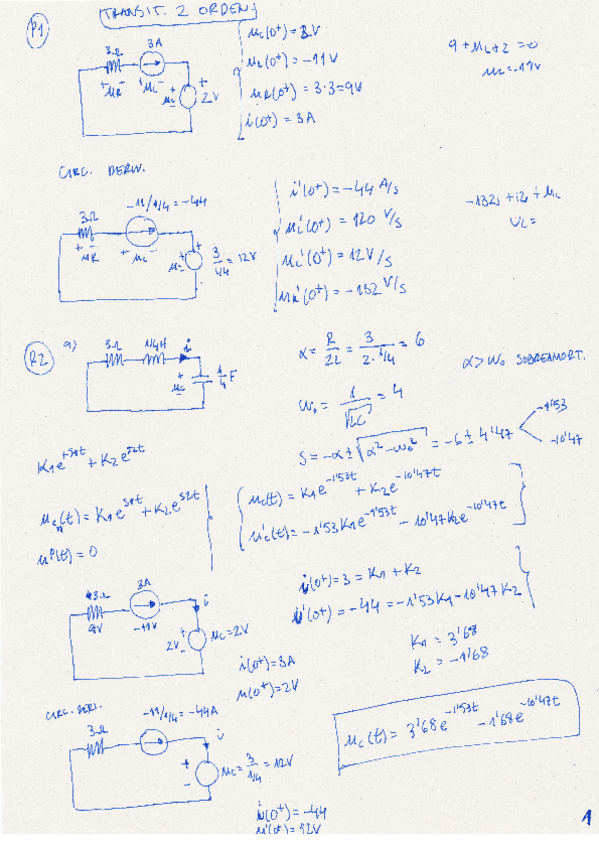 P1
TRANSIT. 2 ORDEN
3Ω
3A
+ uR -
+ uL -
uc
+
-
2V
uc(0+) = 2V
uL(0+) = -11V
uR(0+) = 3·3 = 9V
i(0+) = 3A
9 + uL + 2 = 0
uL = -11V
CIRC. DERIV.
-11/1/4 = -44
3Ω
+ -
uR
+ uL -
uc
+
-
3/44 = 12V
i'(0+) = -44 A/s
uL'(0+) = 120 V/s
uc'(0+) = 12V/s
uR'(0+) = -132 V/s
-132 + 12 + uL
UL =
R2
a)
3Ω
1/4H
i
+
uc
-
1/4 F
α = R/2L = 3/2·1/4 = 6
α > ωo SOBREAMORT.
ωo = 1/√LC = 4
S = -α ± √α² - ωo² = -6 ± 4'47
-1'53
-10'47
K1e^+S1t + K2e^S2t
ucn(t) = K1e^S1t + K2e^S2t
uP(t) = 0
uc(t) = K1e^-1'53t + K2e^-10'47t
u'c(t) = -1'53K1e^-1'53t - 10'47K2e^-10'47t
i(0+) = 3 = K1 + K2
i'(0+) = -44 = -1'53K1 - 10'47K2
K1 = 3'68
K2 = -1'68
3Ω
9V
3A
-11V
i
2V
+
-
uc = 2V
i(0+) = 3A
u(0+) = 2V
CIRC. DERI.
-11/1/4 = -44A
3Ω
i
+
-
uc = 3/1/4 = 12V
uc(t) = 3'68e^-1'53t - 1'68e^-10'47t
i'(0+) = -44
u'(0+) = 12V
1